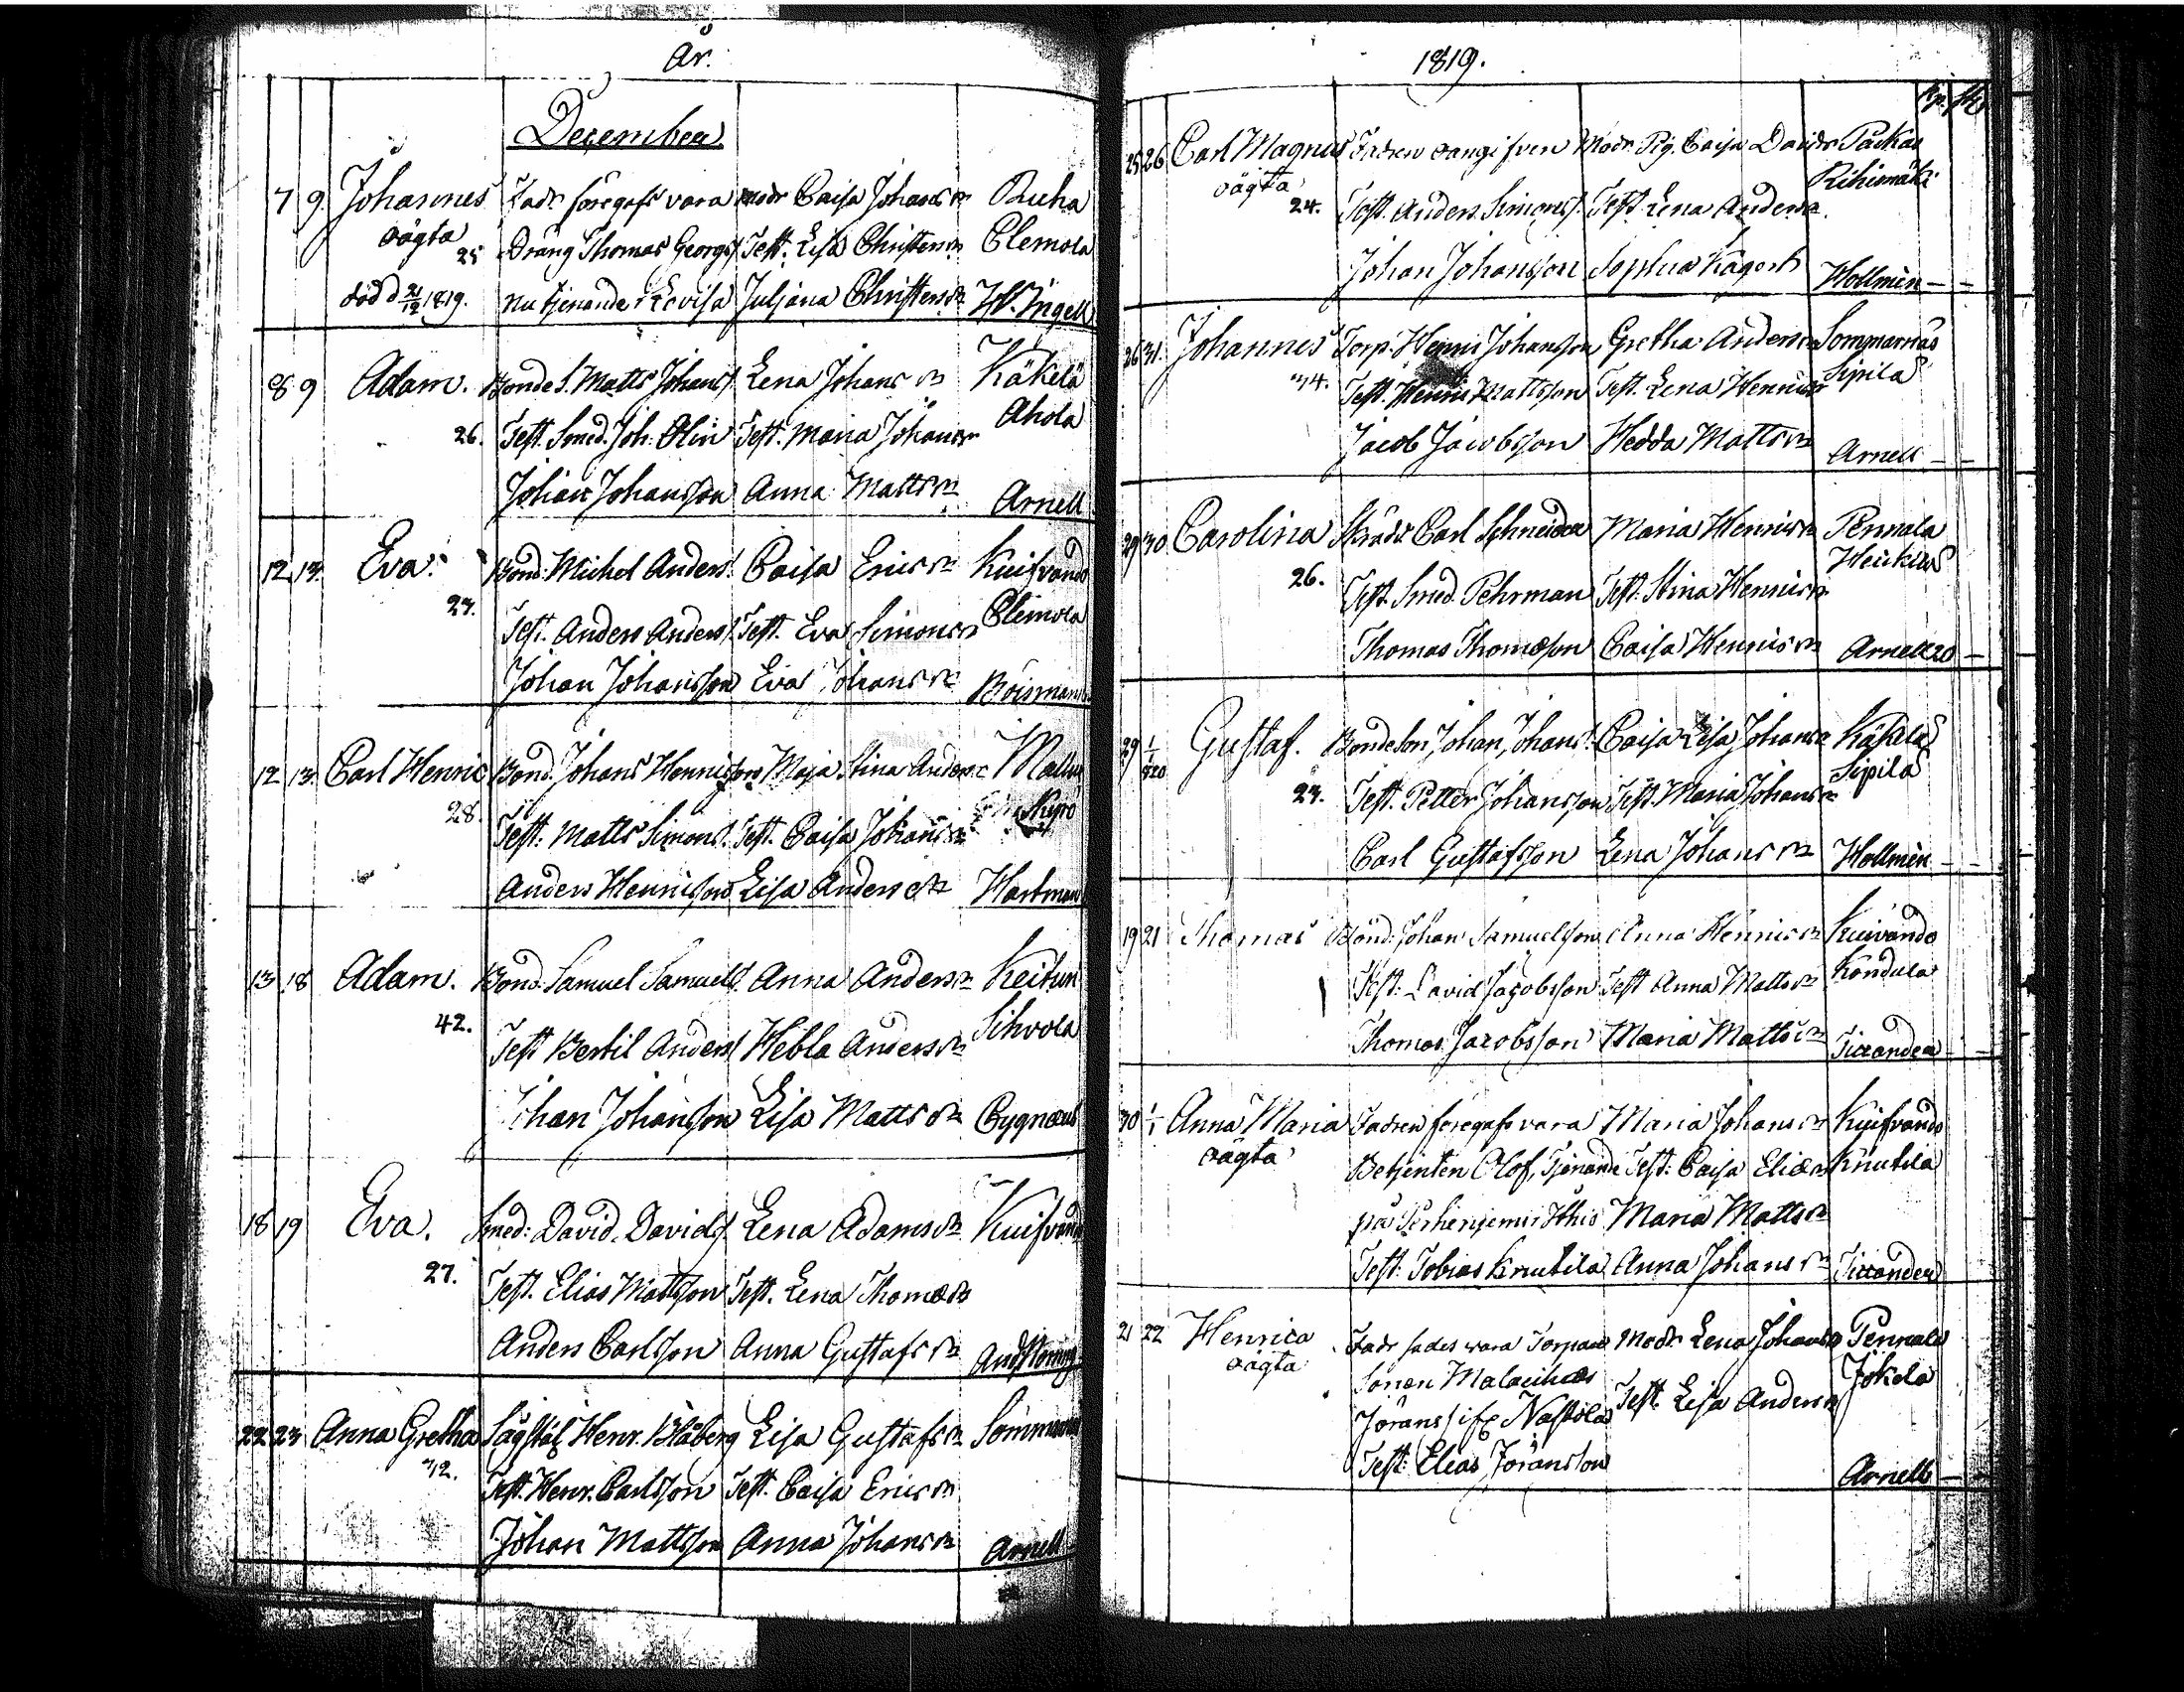 År.
December
7 9 Johannes Fadr föregafs vara modr Caisa Johans dr Ruha
oägta 25 Dräng Thomas Georgs/ Test. Lisa Christers dr Clemola
död d 21/12 1819. nu tjenande i Lovisa Juljana Christers dr Hl. Ingell
8 9 Adam. Bonde S. Matts Johans/. Lena Johans dr Käkelä
26. Test. Smed. Joh. Olin Test. Maria Johans dr Ahola
Johan Johansson Anna Matts dr Arnell
12 13 Eva. Bond. Michel Anders/. Caisa Erics dr Kuifvando
27. Test. Anders Anders/. Test. Eva Simons dr Clemola
Johan Johansson Eva Johans dr Boisman
12 13 Carl Henric Bond. Johans Henricsson Maja Stina Anders dr
28. Test. Matts Simons/. Test. Caisa Johans dr
Anders Henricsson Lisa Anders dr Hartman
13 18 Adam. Bond. Samuel Samuels/. Anna Anders dr Keituri
42. Test Bertil Anders/ Hebla Anders dr Sihvola
Johan Johansson Lisa Matts dr Cygnæus
18 19 Eva. Smed. David Davids/. Lena Adams dr Kuifvando
27. Test. Elias Mattsson Test. Lena Thomæ dr
Anders Carlsson Anna Gustafs dr
22 23 Anna Gretha Henr. Blåberg Lisa Gustafs dr
42. Test. Henr. Carlsson Test. Caisa Erics dr
Johan Mattsson Anna Johans dr Arnell
1819.
25 26 Carl Magnus Fadren oangifven Modr. Pig. Caisa Davids dr Päckas
oägta Rihimäki
24. Test. Anders Simons/. Test. Lena Anders dr
Johan Johansson Sophia Hollmén – –
26 31 Johannes Torp. Henric Johansson Gretha Anders dr Sommarnäs
34. Test. Henric Mattsson Test. Lena Henrics dr Sipilä
Jacob Jacobsson Hedda Matts dr Arnell – –
29 30 Carolina Skrädr Carl Schneider Maria Henrics dr Pennala
Heickilä
26. Test. Smed. Pehrman Test. Stina Henrics dr
Thomas Thomasson Caisa Henrics dr Arnell 20 –
29 1/1 820 Gustaf. Bondeson Johan Johans/. Caisa Lisa Johans dr Käkelä
27. Test. Petter Johansson Test. Maria Johans dr Sipilä
Carl Gustafsson Lena Johans dr Hollmén – –
19 21 Thomas Bond. Johan Samuelsson Anna Henrics dr Kuivando
Test. David Jacobsson Test Anna Matts dr Kondula
Thomas Jacobsson Maria Matts dr Ticcander – –
30 1/1 Anna Maria Fadren föregafs vara Maria Johans dr Kuifvando
oägta Betjenten Olof, Tjenande Test. Caisa Eliæ dr Knutila
på Maria Matts dr
Test. Tobias Knutila Anna Johans dr Ticcander
21 22 Henrica Fadr sades wara Torpare Modr. Lena Johans dr Pennala
oägta Sonen Malachias Jokela
Jörans/ ifr. Nastola Test. Lisa Anders dr
Test. Elias Jöransson Arnell – –